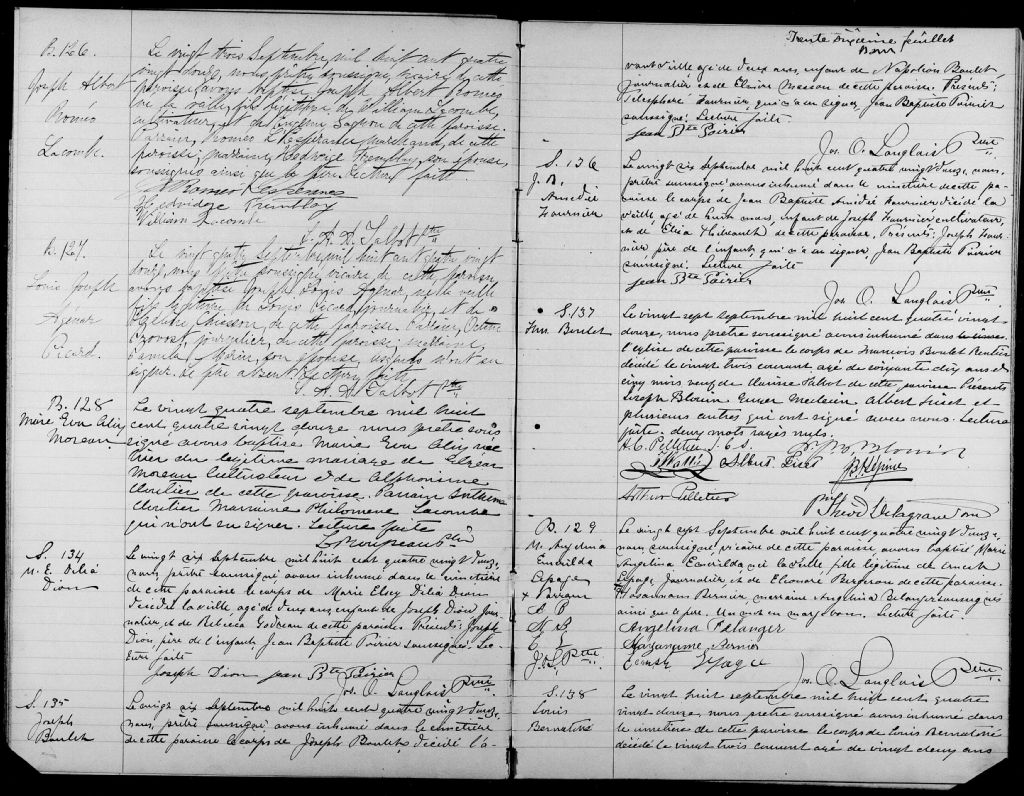 B. 126
Joseph Albert
Roméo
Lacombe.
Le vingt trois Septembre mil huit cent quatre
vingt douze, nous prêtre soussigné, vicaire de cette
paroisse avons baptisé Joseph Albert Roméo
né la veille, fils légitime de William Lacombe,
cultivateur, et de Eugénie Gagnon de cette paroisse.
Parrain, Roméo Lespérance marchand, de cette
paroisse, marraine, Hedwidge Tremblay son épouse,
soussignés ainsi que le père. Lecture faite
Hedwidge Tremblay
William Lacombe
L. A. D. Talbot Ptre
B. 127
Louis Joseph
Agénor
Picard.
Le vingt quatre septembre mil huit cent quatre vingt
douze, nous prêtre soussigné, vicaire de cette paroisse
avons baptisé Joseph Louis Agénor, né la veille
fils légitime de Louis Picard, journalier, et de
de cette paroisse. Parrain, Octave
journalier, de cette paroisse; marraine,
Morin, son épouse, lesquels n'ont su
signer. Le père absent. Lecture faite
L. A. D. Talbot Ptre
B. 128
Marie Eva Aliz
Moreau
Le vingt quatre septembre mil huit
cent quatre vingt douze nous prêtre sous
signé avons baptisé Marie Eva Aliz née
hier du légitime mariage de
Moreau cultivateur et de Alphonsine
Chretien de cette paroisse. Parrain
Chretien Marraine Philomène Lacombe
qui n'ont su signer. Lecture faite
S. 134
M. E. Délia
Dion
Le vingt six septembre mil huit cent quatre vingt douze,
nous, prêtre soussigné avons inhumé dans le cimetière
de cette paroisse le corps de Marie Elsey Délia Dion
décédée la veille agé de deux ans, enfant de Joseph Dion, jour-
nalier, et de Rebecca Godreau de cette paroisse. Présents: Joseph
Dion, père de l'enfant, Jean Baptiste Poirier soussignés. Lec-
ture faite
Joseph Dion Jean Bte Poirier
Jos. O. Langlois Ptre
S. 135
Joseph
Boulet
Le vingt six Septembre mil huit cent quatre vingt douze,
nous, prêtre soussigné avons inhumé dans le cimetière
de cette paroisse le corps de Joseph Boulet, décédé l'a-
Trente sixième feuillet
vant veille agé de deux ans, enfant de Napoléon Boulet,
Journalier et de Elmire Masson de cette paroisse. Présents:
Télesphore Fournier, qui n'a su signer, Jean Baptiste Poirier
soussigné. Lecture faite.
Jean Bte Poirier
Jos. O. Langlois Ptre
S. 136
J. B.
Amédée
Fournier
Le vingt six septembre mil huit cent quatre vingt douze, nous,
prêtre soussigné avons inhumé dans le cimetière de cette pa-
roisse le corps de Jean Baptiste Amédé Fournier décédé la
veille agé de huit mois, enfant de Joseph Fournier cultivateur,
et de Elisa Thibeault de cette paroisse, Présents: Joseph Four-
nier, père de l'enfant, qui n'a su signer, Jean Baptiste Poirier
soussigné. Lecture faite
Jean Bte Poirier
Jos. O. Langlois Ptre
S. 137
Frs. Boulet
Le vingt sept septembre mil huit cent quatre vingt
douze, nous prêtre soussigné avons inhumé dans
l'église de cette paroisse le corps de François Boulet Rentier
décédé le vingt trois courant agé de soixante dix ans et
cinq mois veuf de Clarisse Talbot de cette paroisse Présents
Joseph Blouin Médecin Albert Fiset et
plusieurs autres qui ont signé avec nous. Lecture
faite. deux mots rayés nuls.
H. C. Pelletier
Albert Fiset
Arthur Pelletier
B. 129
M. Angelina
Exwilda
Lepage
+ Baram
A B
M B
E L
J. O. L. Ptre
Le vingt sept Septembre mil huit cent quatre vingt douze,
nous soussigné, vicaire de cette paroisse, avons baptisé Marie
Angelina Exwilda née la veille fille légitime de Ernest
Lepage, Journalier et de Eléonore Bergeron de cette paroisse.
Bernier, marraine Angelina Belanger soussignés
ainsi que le père. Un mot en marge bon. Lecture faite.
Angelina Belanger
Bernier
Ernest Lepage
Jos. O. Langlois Ptre
S. 138
Louis
Bernatché
Le vingt huit septembre mil huit cent quatre
vingt douze, nous prêtre soussigné avons inhumé dans
le cimetière de cette paroisse le corps de Louis Bernatché
décédé le vingt trois courant agé de vingt deux ans